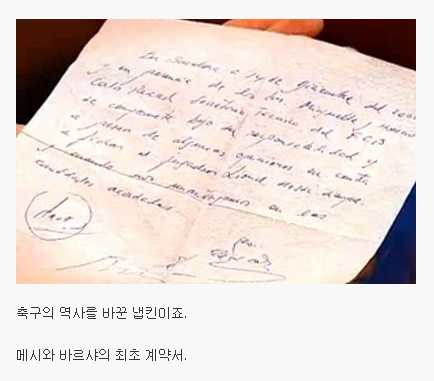 En Barcelona a 14 de Diciembre del 2000
y en presencia de los Srs Minguella y Horacio
Carles Rexach Secretario Técnico del F.C.B
se compromete bajo su responsabilidad y
a pesar de algunas opiniones en contra
a fichar al jugador Lionel Messi
y cuando nos mantengamos en las
cantidades acordadas
축구의 역사를 바꾼 냅킨이죠.
메시와 바르샤의 최초 계약서.